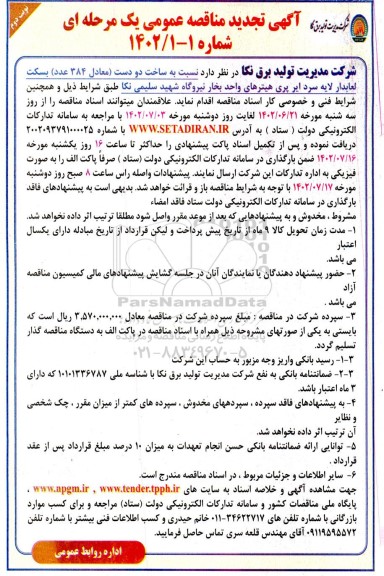 نوبت دوم
شرکت مدیریت تولید برق نکا
آگهی تجدید مناقصه عمومی یک مرحله ای
شماره ۱-۱۴۰۲/۱
شرکت مدیریت تولید برق نکا در نظر دارد نسبت به ساخت دو دست (معادل ۳۸۴ عدد) بسکت
لعابدار لایه سرد ایر پری هیترهای واحد بخار نیروگاه شهید سلیمی نکا طبق شرایط ذیل و همچنین
شرایط فنی و خصوصی کار اسناد مناقصه اقدام نماید. علاقمندان میتوانند اسناد مناقصه را از روز
سه شنبه مورخه ۱۴۰۲/۰۶/۲۱ لغایت روز دوشنبه مورخه ۱۴۰۲/۰۷/۰۳ با مراجعه به سامانه تدارکات
الکترونیکی دولت ( ستاد ) به آدرس WWW.SETADIRAN.IR با شماره ۲۰۰۲۰۹۳۷۹۱۰۰۰۰۲۵
دریافت نموده و پس از تکمیل اسناد پاکت پیشنهادی را حداکثر تا ساعت ۱۶ روز یکشنبه مورخه
۱۴۰۲/۰۷/۱۶ ضمن بارگذاری در سامانه تدارکات الکترونیکی دولت (ستاد ) صرفاً پاکت الف را به صورت
فیزیکی به اداره تدارکات این شرکت ارسال نمایند. پیشنهادات واصله راس ساعت ۸ صبح روز دوشنبه
مورخه ۱۴۰۲/۰۷/۱۷ با توجه به شرایط مناقصه باز و قرائت خواهد شد. بدیهی است به پیشنهادهای فاقد
بارگذاری در سامانه تدارکات الکترونیکی دولت ستاد فاقد امضاء
مشروط ، مخدوش و به پیشنهادهایی که بعد از موعد مقرر واصل شود مطلقا ترتیب اثر داده نخواهد شد.
۱- مدت زمان تحویل کالا ۹ ماه از تاریخ پیش پرداخت و لیکن قرارداد از تاریخ مبادله دارای یکسال
اعتبار
می باشد.
۲- حضور پیشنهاد دهندگان یا نمایندگان آنان در جلسه گشایش پیشنهادهای مالی کمیسیون مناقصه
آزاد
می باشد .
۳- سپرده شرکت در مناقصه : مبلغ سپرده شرکت در مناقصه معادل ۳.۵۷۰.۰۰۰.۰۰۰ ریال است که
بایستی به یکی از صورتهای مشروحه ذیل همراه با اسناد مناقصه در پاکت الف به دستگاه مناقصه گذار
تسلیم گردد.
۱-۳- رسید بانکی واریز وجه مزبور به حساب این شرکت
۲-۳- ضمانتنامه بانکی به نفع شرکت مدیریت تولید برق نکا با شناسه ملی ۱۰۱۰۱۳۳۶۷۸۷ که دارای
۳ ماه اعتبار باشد.
۴- به پیشنهادهای فاقد سپرده ، سپردههای مخدوش ، سپرده های کمتر از میزان مقرر ، چک شخصی
و نظایر
آن ترتیب اثر داده نخواهد شد.
۵- توانایی ارائه ضمانتنامه بانکی حسن انجام تعهدات به میزان ۱۰ درصد مبلغ قرارداد پس از عقد
قرارداد .
۶- سایر اطلاعات و جزئیات مربوط ، در اسناد مناقصه مندرج است.
جهت مشاهده آگهی و خلاصه اسناد به سایت های www.tender.tpph.ir , www.npgm.ir ،
پایگاه ملی مناقصات کشور و سامانه تدارکات الکترونیکی دولت (ستاد) مراجعه و برای کسب موارد
بازرگانی با شماره تلفن های ۳۴۶۲۲۷۱۷-۰۱۱ خانم حیدری و کسب اطلاعات فنی بیشتر با شماره تلفن
۰۹۱۱۹۵۹۵۵۷۲ آقای مهندس قلعه سری تماس حاصل فرمایید.
اداره روابط عمومی
ParsNamadData
۰۲۱-۸۸۳۴۹۶۷۰-۵